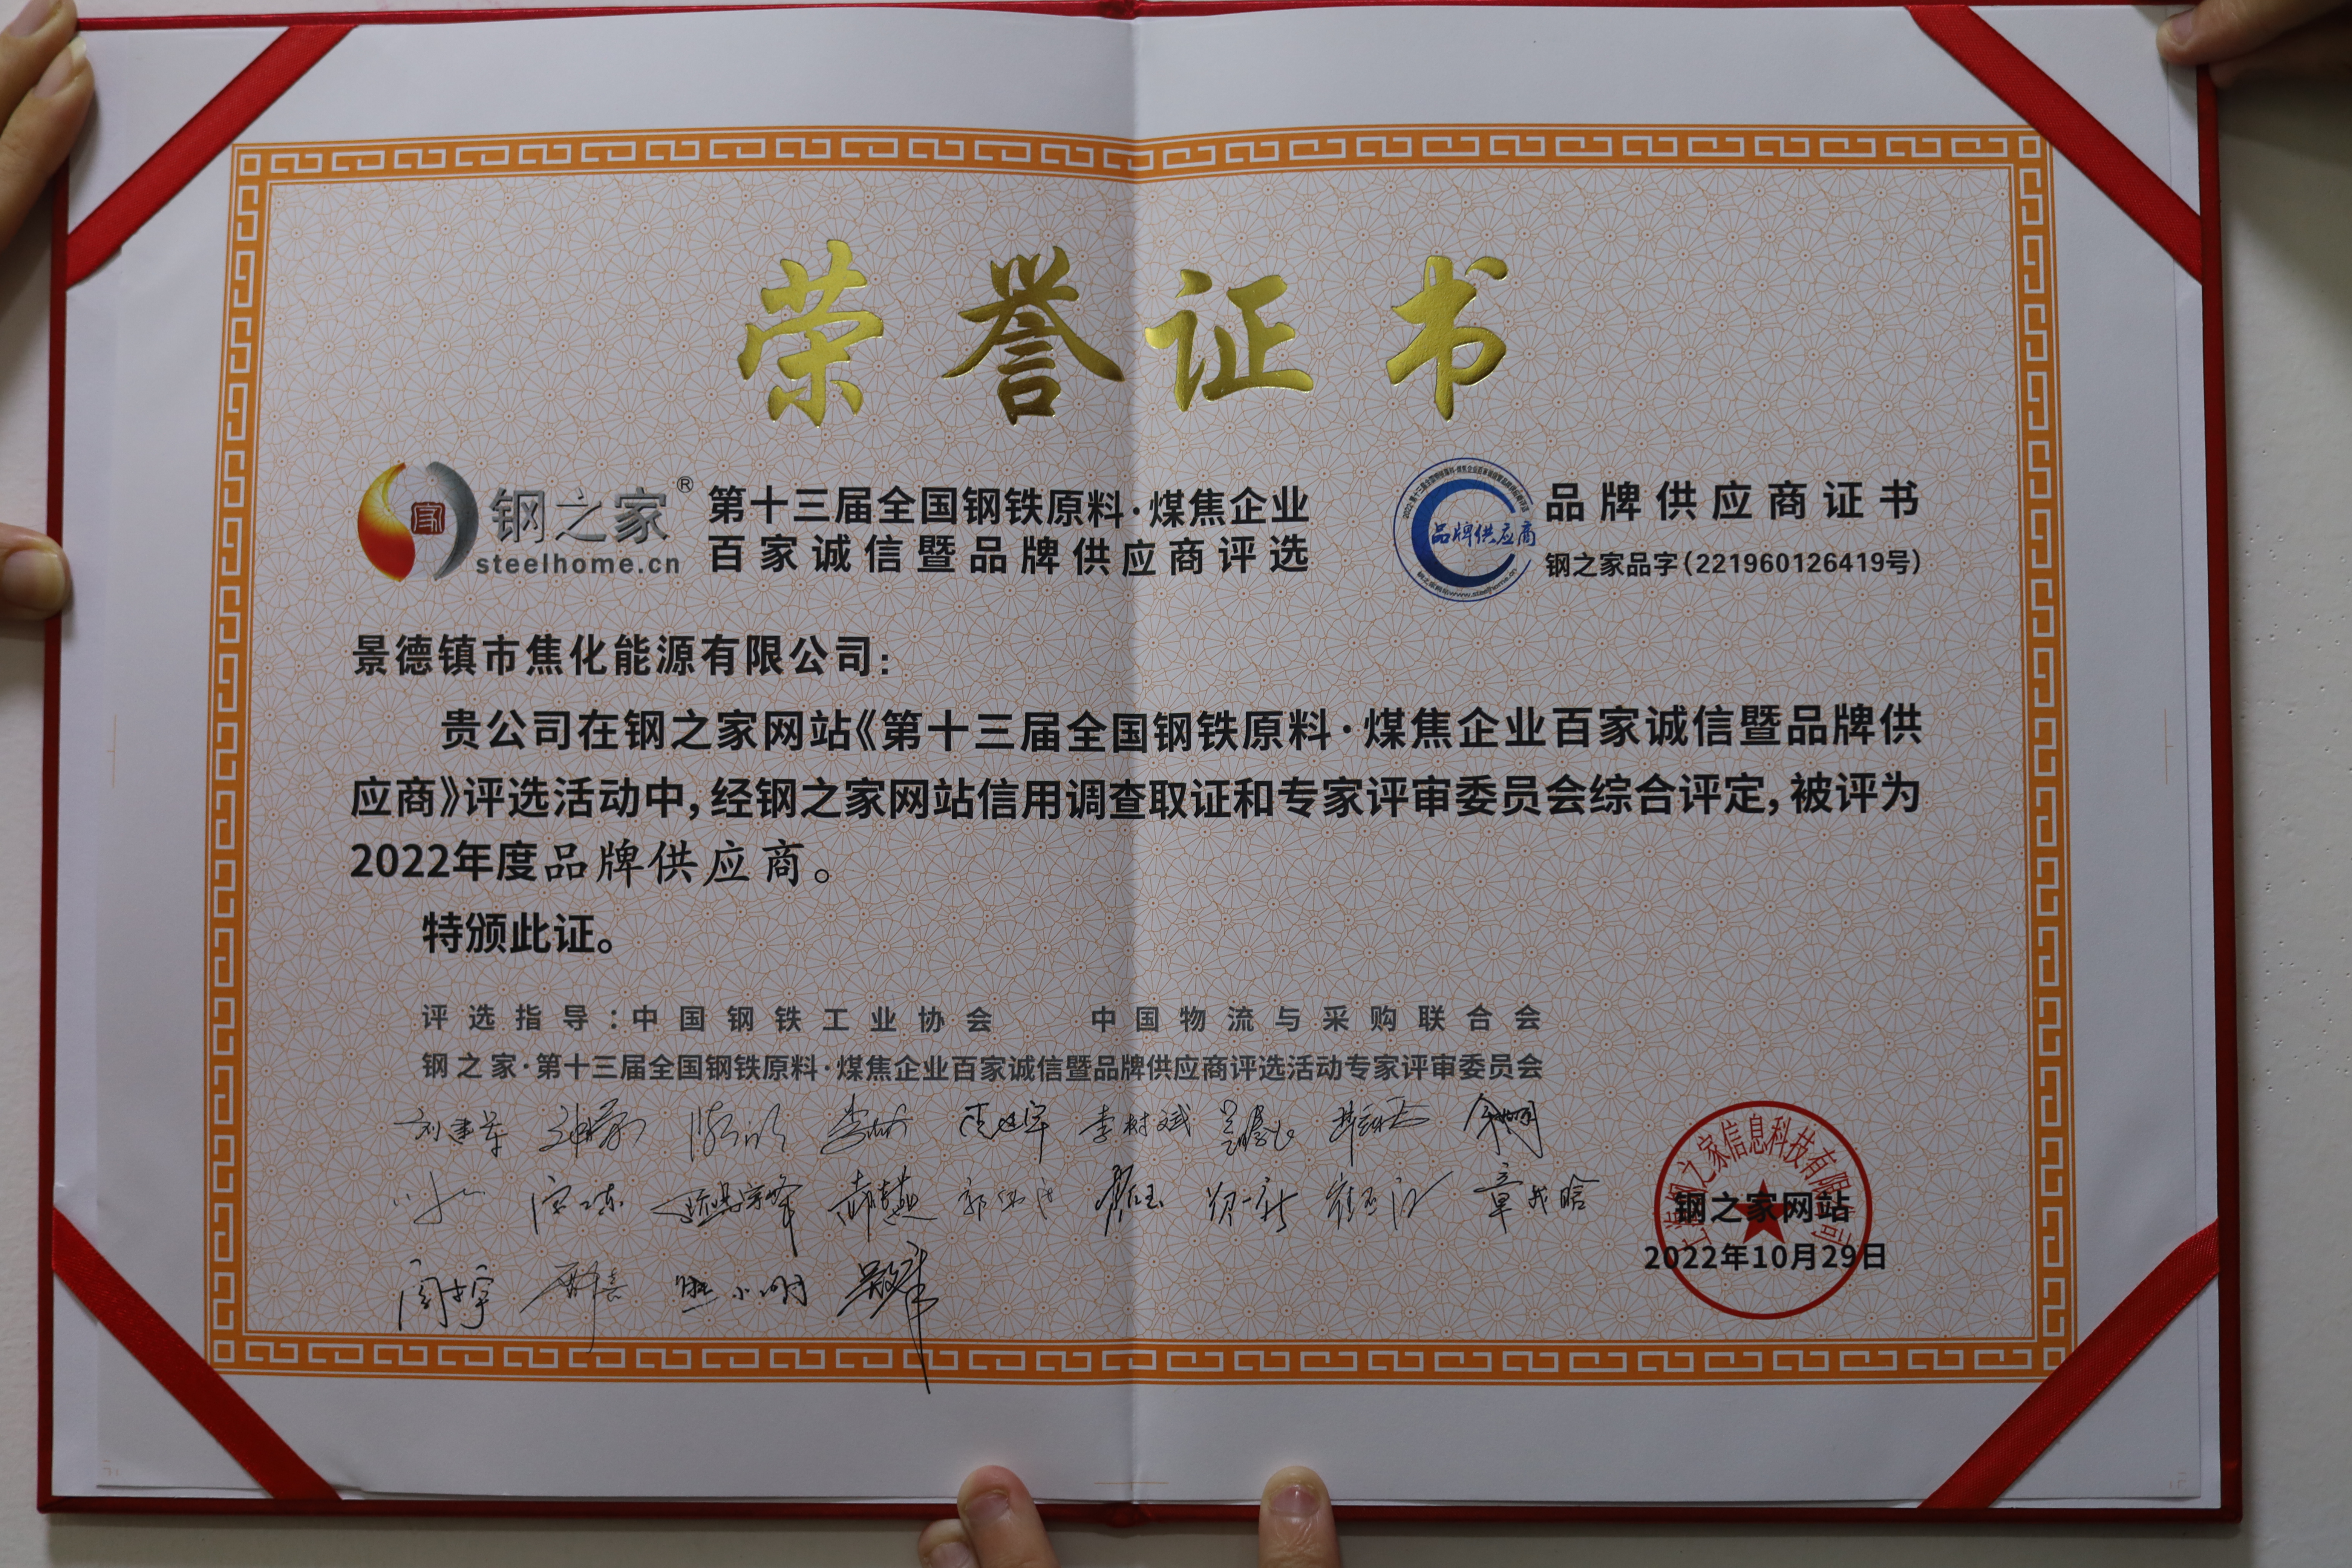 荣誉证书
钢之家®
steelhome.cn
第十三届全国钢铁原料·煤焦企业
百家诚信暨品牌供应商评选
品牌供应商
品牌供应商证书
钢之家品字(221960126419号)
景德镇市焦化能源有限公司:
贵公司在钢之家网站《第十三届全国钢铁原料·煤焦企业百家诚信暨品牌供
应商》评选活动中,经钢之家网站信用调查取证和专家评审委员会综合评定,被评为
2022年度品牌供应商。
特颁此证。
评选指导:中国钢铁工业协会 中国物流与采购联合会
钢之家·第十三届全国钢铁原料·煤焦企业百家诚信暨品牌供应商评选活动专家评审委员会
刘建军 李树斌
上海钢之家信息科技有限公司
钢之家网站
2022年10月29日